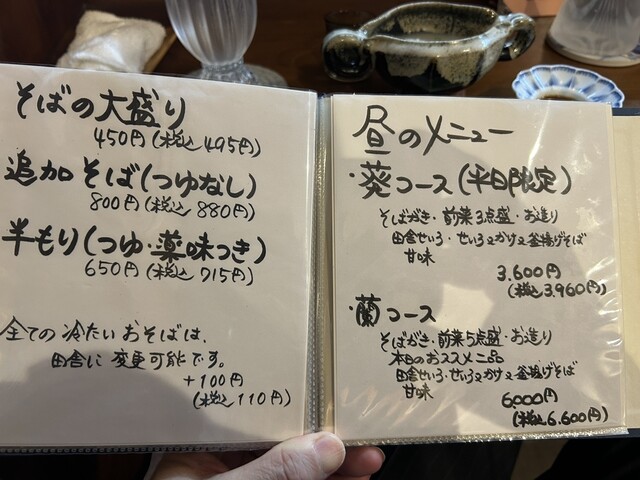 そばの大盛り
450円(税込495円)
追加そば(つゆなし)
800円(税込880円)
半もり(つゆ・薬味つき)
650円(税込715円)
全ての冷たいおそばは、
田舎に変更可能です。
+100円
(税込110円)
昼のメニュー
・葵コース(平日限定)
そばがき・前菜3点盛・お造り
田舎せいろ・せいろ又かけ又釜揚げそば
甘味
3.600円
(税込3.960円)
・蘭コース
そばがき・前菜5点盛・お造り
本日のおススメ二品
田舎せいろ・せいろ又かけ又釜揚げそば
甘味
6.000円
(税込6.600円)